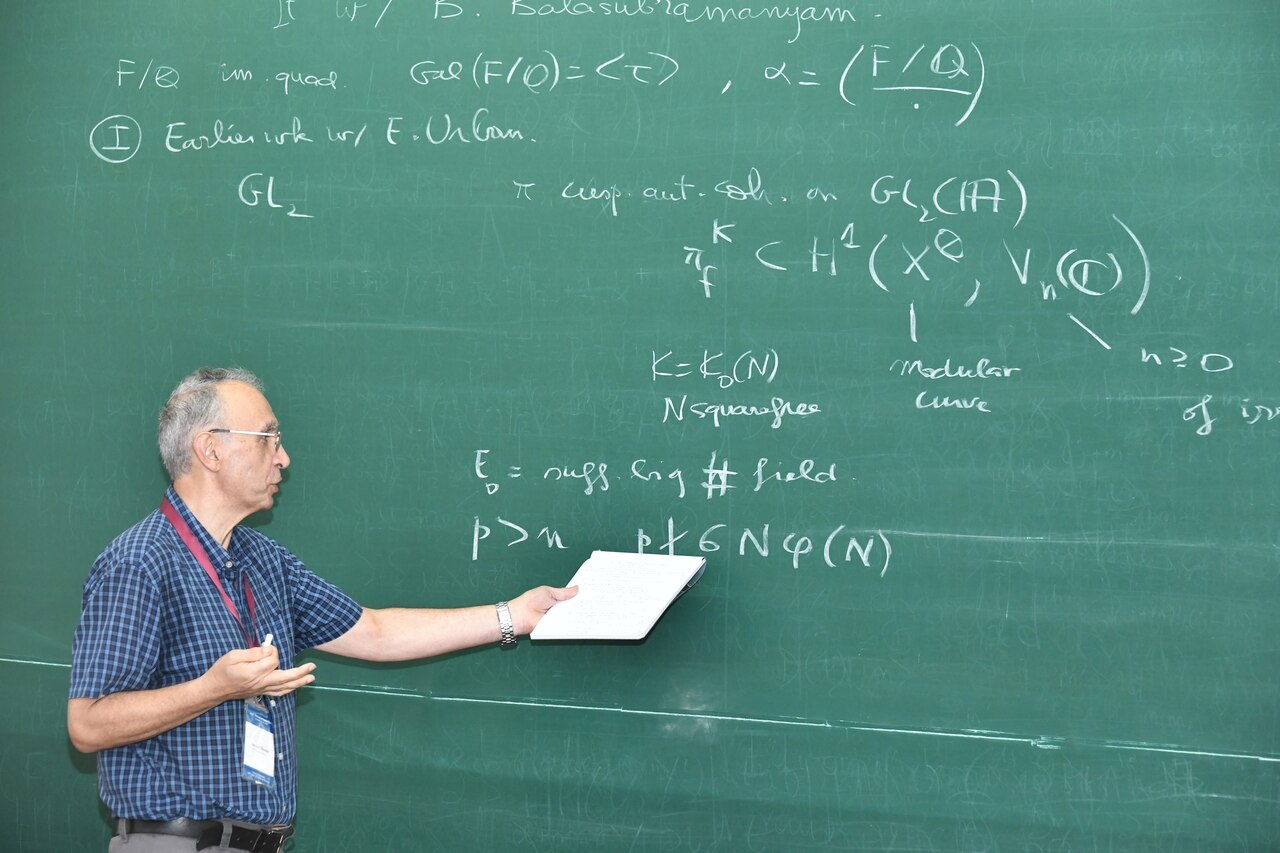 II w/ B. Balasubramanyam.
F/Q im. quad. Gal(F/Q) = <τ>, α = (F/Q / ·)
(I) Earlier wk w/ E. Urban.
GL₂ π cusp. aut. coh. on GL₂(𝔸)
π_f^K ⊂ H¹(X^Q, V_n(ℂ)).
K = K₀(N) modular n ≥ 0
N squarefree curve of irr
E₀ = suff. big # field.
p > n p ∤ 6 N φ(N)